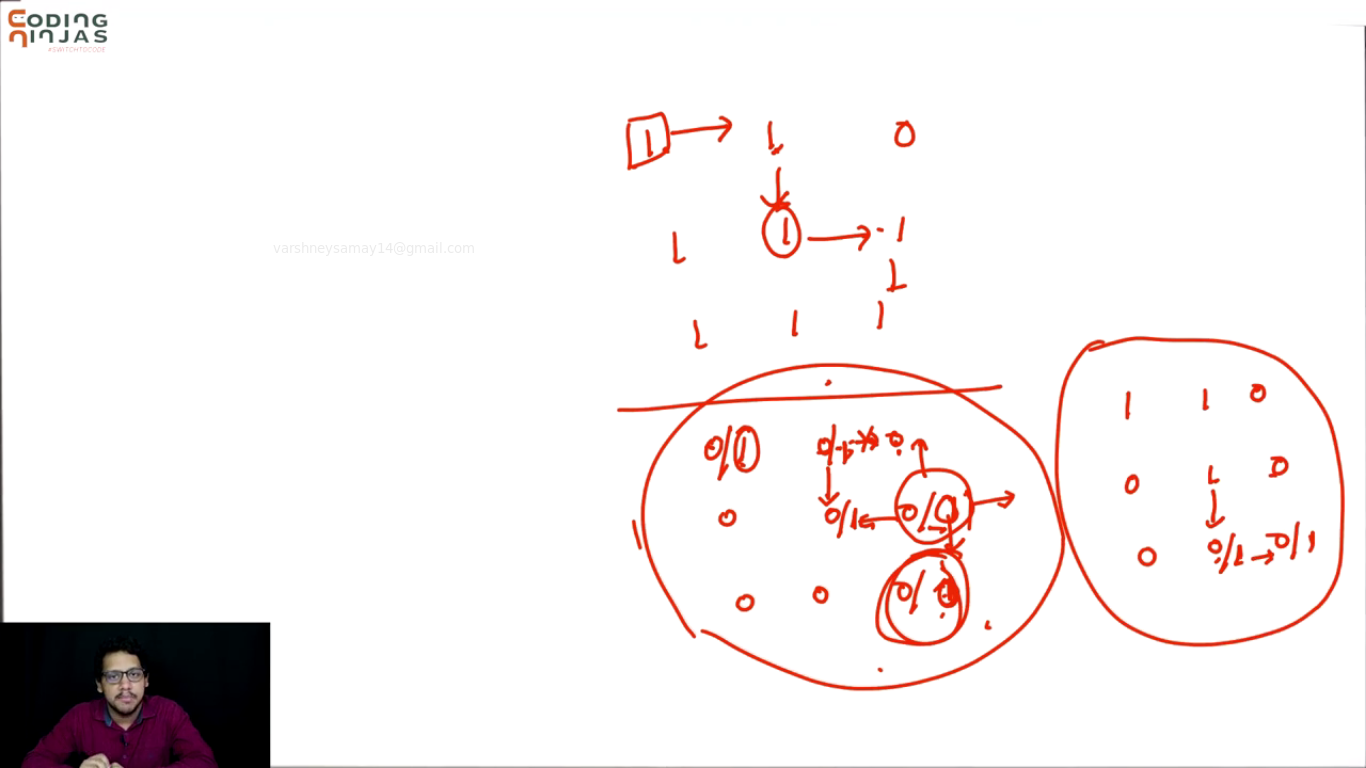 CODING
NINJAS
#SWITCHTOCODE
1 1 0
varshneysamay14@gmail.com
1 1 1
1
1 1 1
0/1 0/1 0
0 0/1 0/1
0 0 0/1
1 1 0
0 1 0
0 0/1 0/1